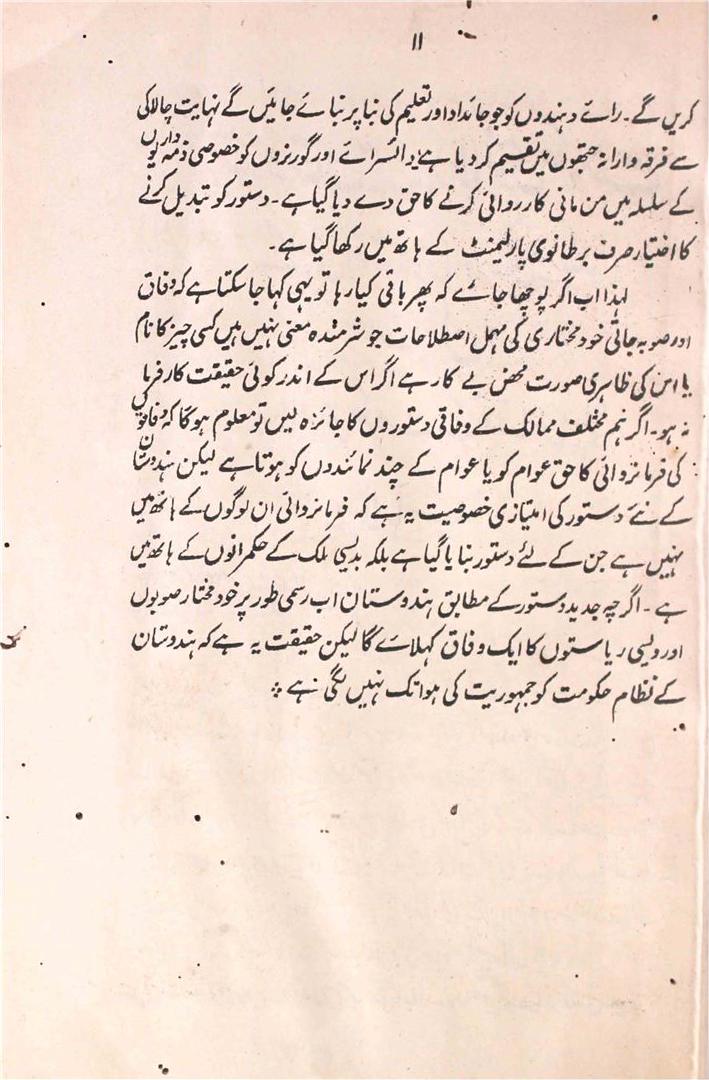 ۱۱
کریں گے۔ رائے دہندوں کو جو جائداد اور تعلیم کی بنا پر بنائے جائیں گے نہایت چالاکی
سے فرقہ وارانہ جتھوں میں تقسیم کر دیا ہے وائسرائے اور گورنروں کو خصوصی ذمہ داریوں
کے سلسلہ میں من مانی کارروائی کرنے کا حق دے دیا گیا ہے۔ دستور کو تبدیل کرنے
کا اختیار صرف برطانوی پارلیمنٹ کے ہاتھ میں رکھا گیا ہے۔
لہذا اب اگر پوچھا جائے کہ پھر باقی کیا رہا تو یہی کہا جا سکتا ہے کہ وفاق
اور صوبہ جاتی خود مختاری کی مہمل اصطلاحات جو شرمندہ معنی نہیں ہیں کسی چیز کا نام
یا اس کی ظاہری صورت محض بے کار ہے اگر اس کے اندر کوئی حقیقت کار فرما
نہ ہو۔ اگر ہم مختلف ممالک کے وفاقی دستوروں کا جائزہ لیں تو معلوم ہوگا کہ وفاقوں
کی فرمانروائی کا حق عوام کو یا عوام کے چند نمائندوں کو ہوتا ہے لیکن ہندوستان
کے نئے دستور کی امتیازی خصوصیت یہ ہے کہ فرمانروائی ان لوگوں کے ہاتھ میں
نہیں ہے جن کے لئے دستور بنایا گیا ہے بلکہ بدیسی ملک کے حکمرانوں کے ہاتھ میں
ہے۔ اگرچہ جدید دستور کے مطابق ہندوستان اب رسمی طور پر خود مختار صوبوں
اور دیسی ریاستوں کا ایک وفاق کہلائے گا لیکن حقیقت یہ ہے کہ ہندوستان
کے نظام حکومت کو جمہوریت کی ہوا تک نہیں لگی ہے ؞